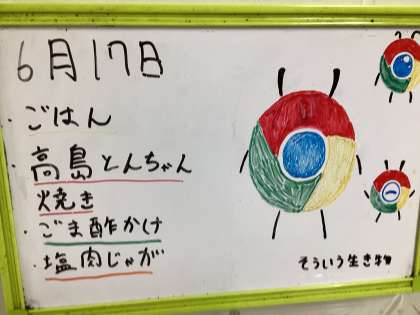 6月17日
・ごはん
・高島とんちゃん
焼き
・ごま酢かけ
・塩肉じゃが
そういう生き物